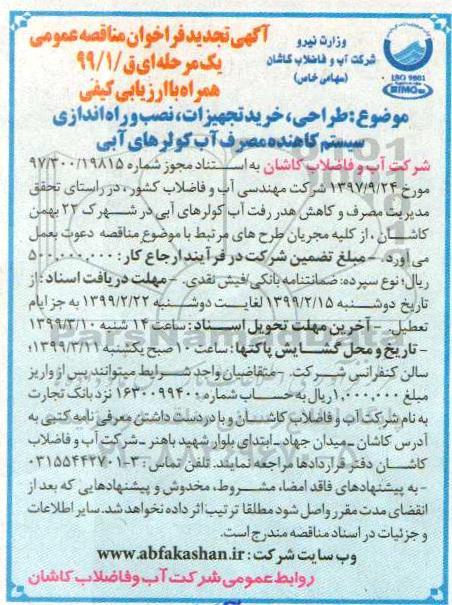 آگهی تجدید فراخوان مناقصه عمومی
یک مرحله ای ق/۹۹/۱
همراه با ارزیابی کیفی
وزارت نیرو
شرکت آب و فاضلاب کاشان
(سهامی خاص)
ISO 9001
موضوع: طراحی، خرید تجهیزات، نصب و راه اندازی
سیستم کاهنده مصرف آب کولرهای آبی
شرکت آب و فاضلاب کاشان به استناد مجوز شماره ۹۷/۳۰۰/۱۹۸۱۵
مورخ ۱۳۹۷/۹/۲۴ شرکت مهندسی آب و فاضلاب کشور، در راستای تحقق
مدیریت مصرف و کاهش هدر رفت آب کولرهای آبی در شهرک ۲۲ بهمن
کاشان، از کلیه مجریان طرح های مرتبط با موضوع مناقصه دعوت بعمل
می آورد. - مبلغ تضمین شرکت در فرآیند ارجاع کار: ۵۰۰,۰۰۰,۰۰۰
ریال؛ نوع سپرده: ضمانتنامه بانکی/فیش نقدی. - مهلت دریافت اسناد: از
تاریخ دوشنبه ۱۳۹۹/۲/۱۵ لغایت دوشنبه ۱۳۹۹/۲/۲۲ به جز ایام
تعطیل. - آخرین مهلت تحویل اسناد: ساعت ۱۴ شنبه ۱۳۹۹/۳/۱۰
- تاریخ و محل گشایش پاکتها: ساعت ۱۰ صبح یکشنبه ۱۳۹۹/۳/۱۱؛
سالن کنفرانس شرکت. - متقاضیان واجد شرایط میتوانند پس از واریز
مبلغ ۱,۰۰۰,۰۰۰ ریال به حساب شماره ۱۶۳۰۰۹۹۴۰۰ نزد بانک تجارت
به نام شرکت آب و فاضلاب کاشان و با در دست داشتن معرفی نامه کتبی به
آدرس کاشان - میدان جهاد - ابتدای بلوار شهید باهنر - شرکت آب و فاضلاب
کاشان دفتر قراردادها مراجعه نمایند. تلفن تماس: ۳-۰۳۱۵۵۴۴۲۷۰۱
- به پیشنهادهای فاقد امضاء، مشروط، مخدوش و پیشنهادهایی که بعد از
انقضای مدت مقرر واصل شود مطلقا ترتیب اثر داده نخواهد شد. سایر اطلاعات
و جزئیات در اسناد مناقصه مندرج است.
وب سایت شرکت: www.abfakashan.ir
روابط عمومی شرکت آب و فاضلاب کاشان